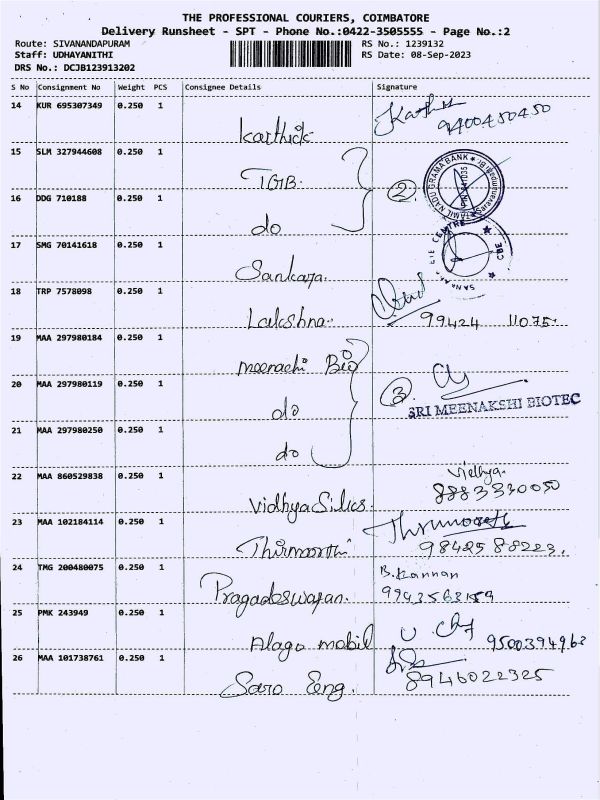 THE PROFESSIONAL COURIERS, COIMBATORE
Delivery Runsheet - SPT - Phone No.:0422-3505555 - Page No.:2
Route: SIVANANDAPURAM RS No.: 1239132
Staff: UDHAYANITHI RS Date: 08-Sep-2023
DRS No.: DCJB123913202
S No Consignment No Weight PCS Consignee Details Signature
14 KUR 695307349 0.250 1
Karthick 9400450450
15 SLM 327944608 0.250 1
TGB. 2
TAMIL NADU GRAMA BANK
16 DDG 710188 0.250 1
do
17 SMG 70141618 0.250 1
Sankara.
CBE
18 TRP 7578098 0.250 1
Lakshna. 99424 11075.
19 MAA 297980184 0.250 1
meenachi Bio
20 MAA 297980119 0.250 1
do 3 SRI MEENAKSHI BIOTEC
21 MAA 297980250 0.250 1
do
22 MAA 860529838 0.250 1 Vidhya.
Vidhya Silks. 8883330050
23 MAA 102184114 0.250 1
Thirmoorthi 98425 88223.
24 TMG 200480075 0.250 1 B. Kannan
Pragadeswaran. 9943563159
25 PMK 243949 0.250 1
Alagu mobil 9500394963
26 MAA 101738761 0.250 1
Saro Eng. 8946022325